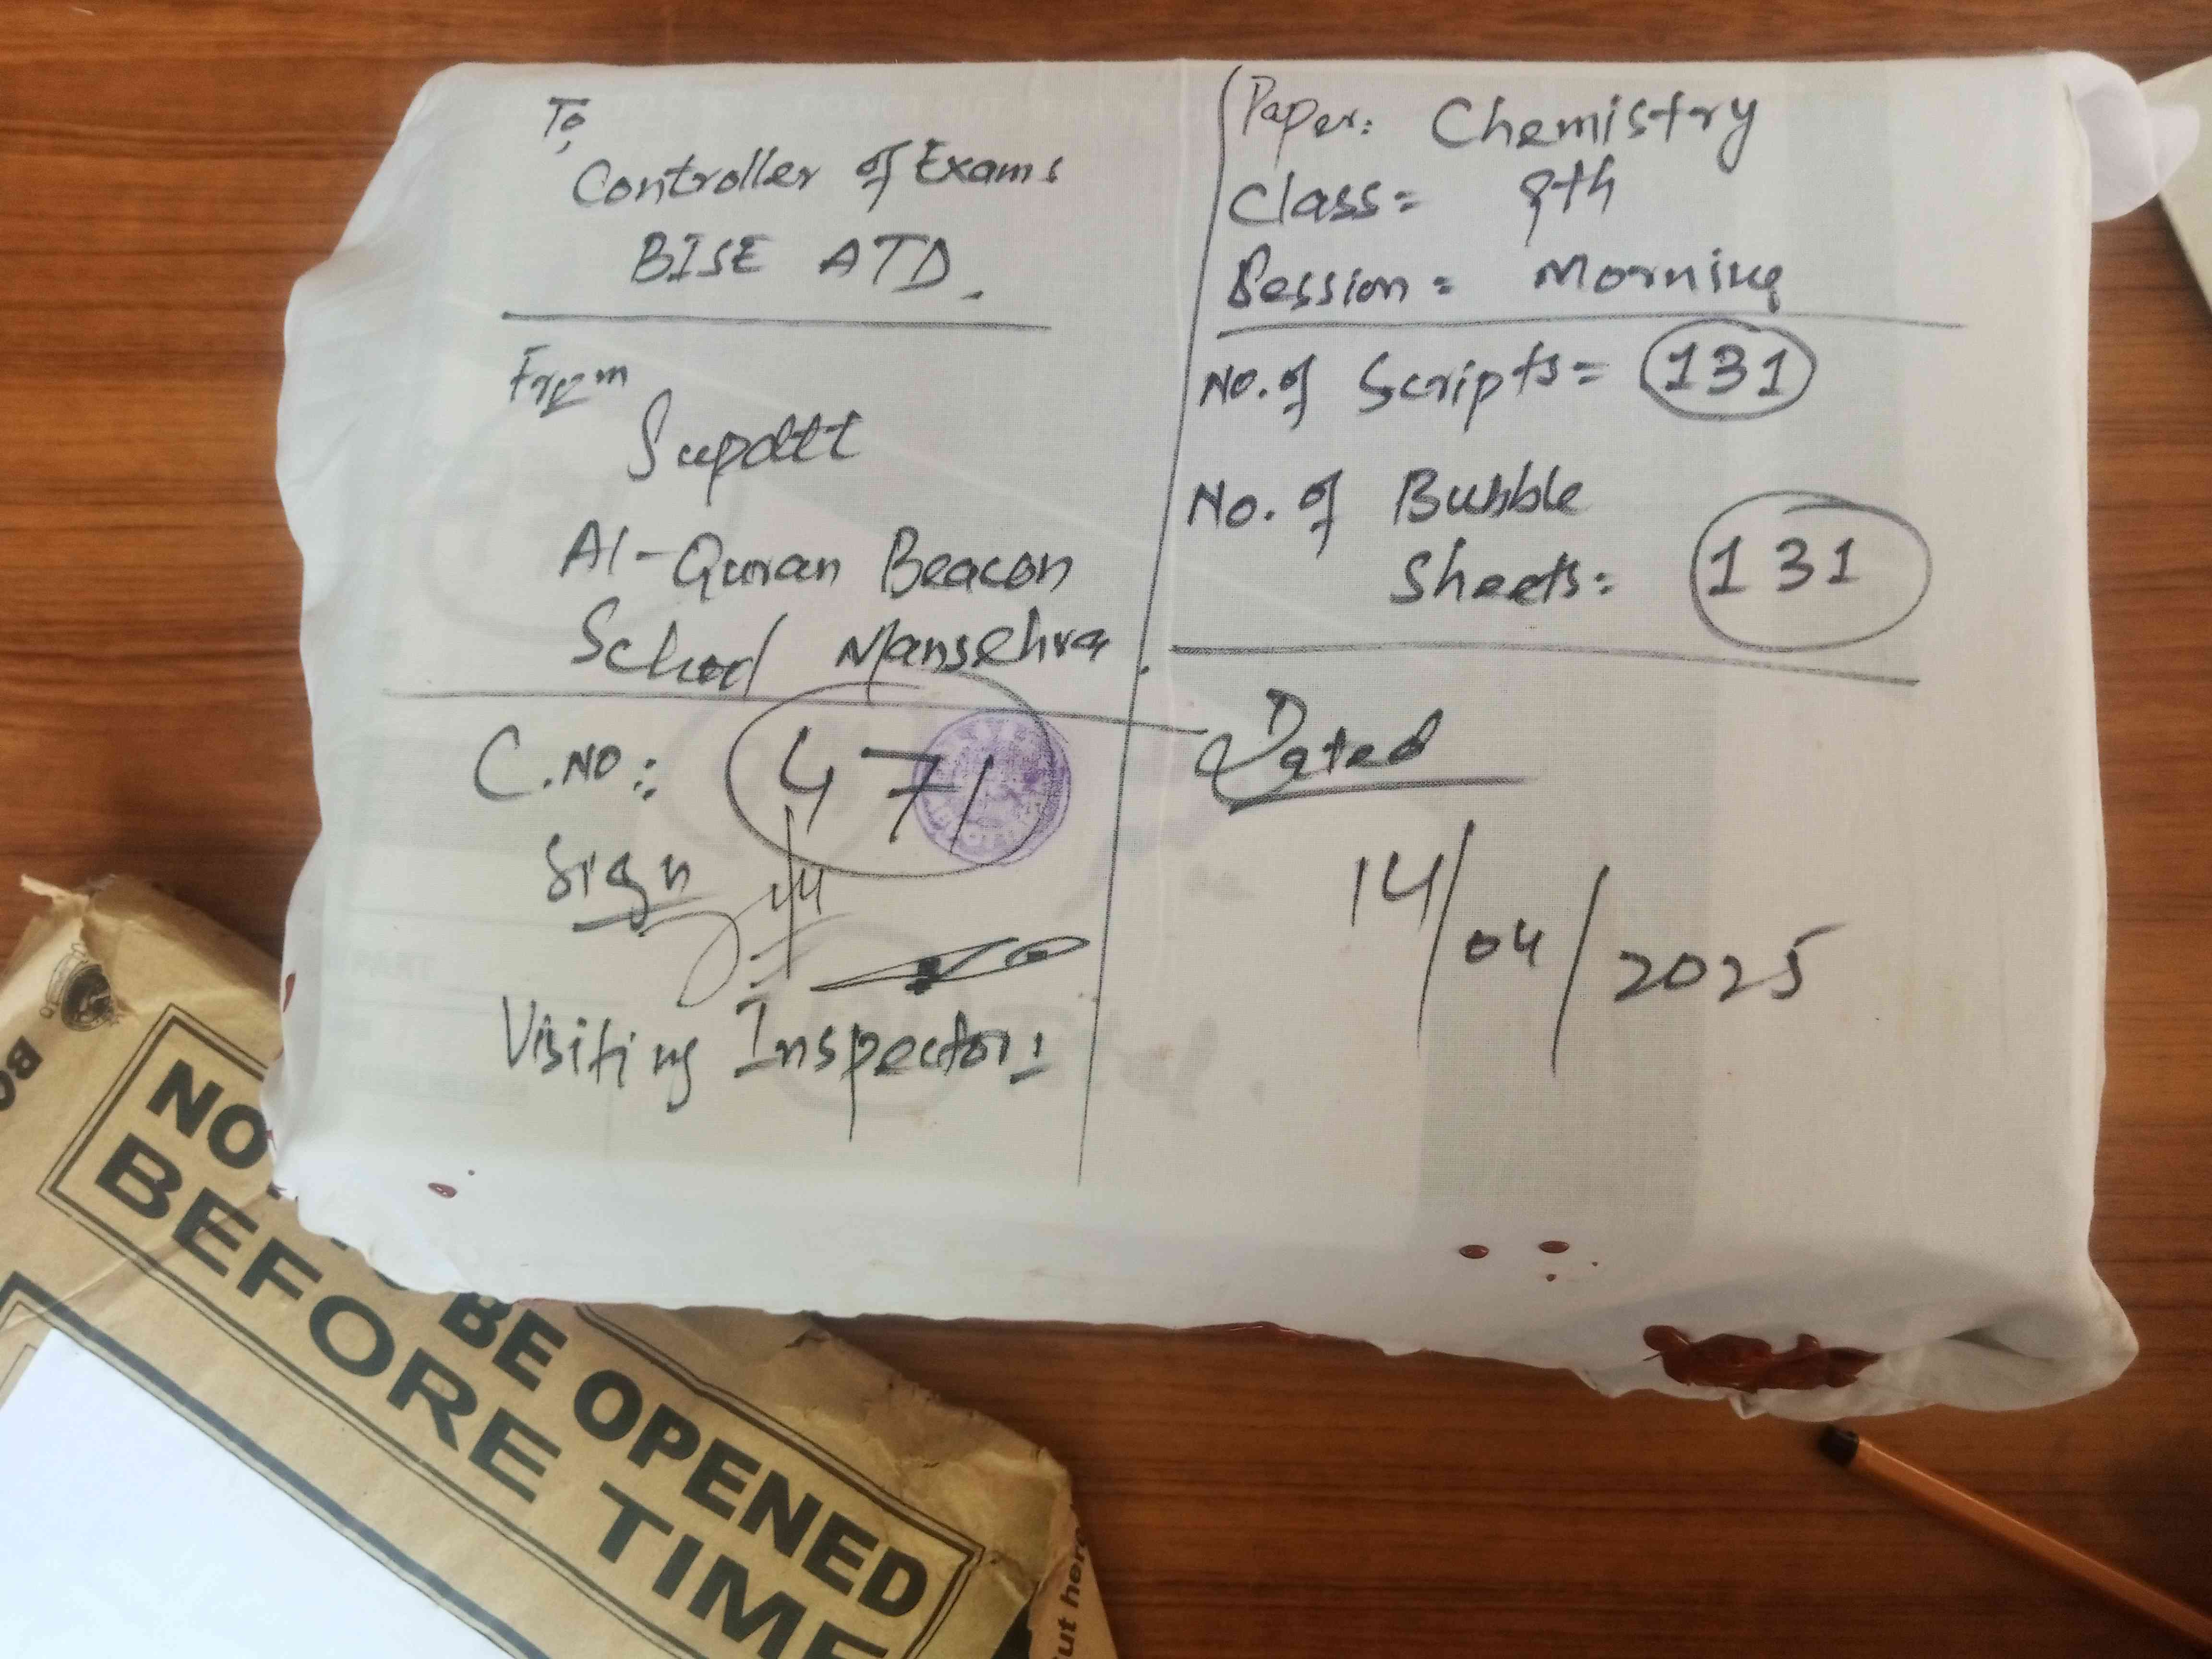 To,
Controller of Exams
BISE ATD.
From
Supdtt
Al-Quran Beacon
School Mansehra.
C.NO:
471
Sign
Visiting Inspector:
Paper: Chemistry
Class= 9th
Session= Morning
No. of Scripts= 131
No. of Bubble
Sheets: 131
Dated
14/04/2025
NO
BE OPENED
BEFORE TIME
ut here